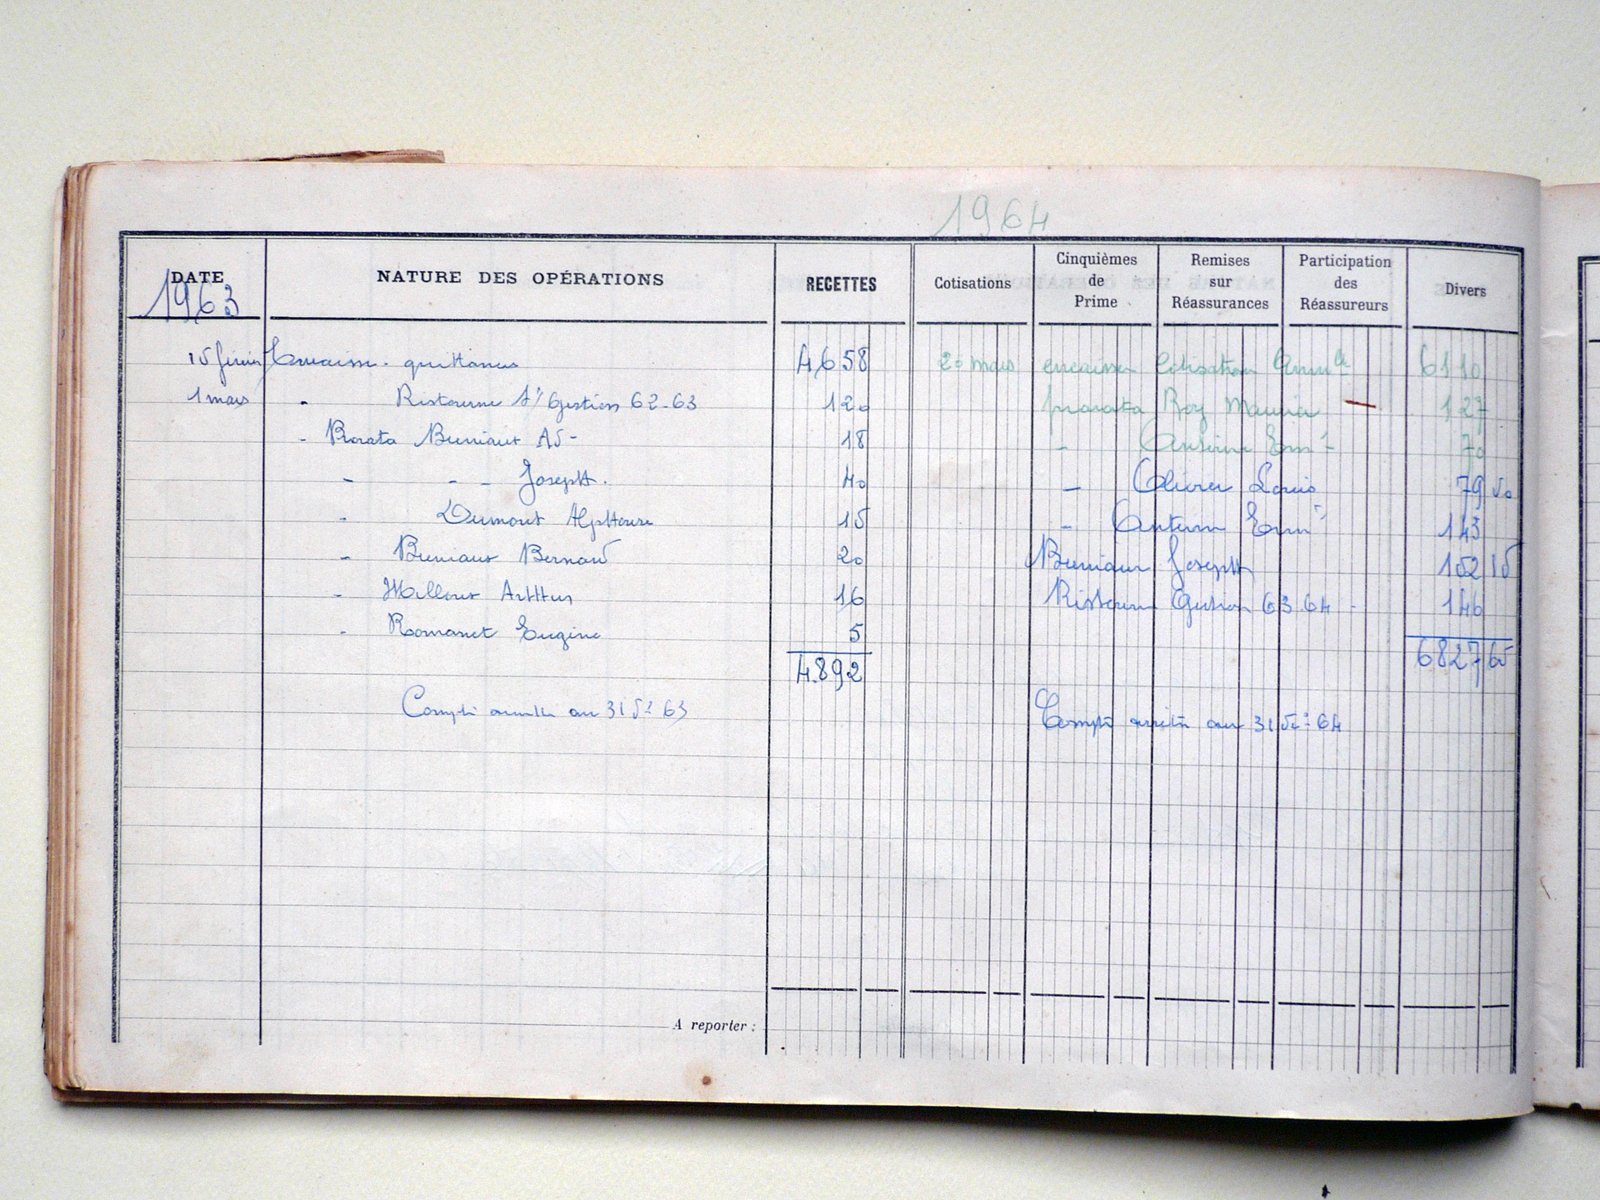 1964
DATE
1963
NATURE DES OPÉRATIONS
RECETTES
Cotisations
Cinquièmes
de
Prime
Remises
sur
Réassurances
Participation
des
Réassureurs
Divers
15 février Encaiss. quittances 4658
1 mars - Ristourne Gestion 62-63 120
- Prorata 18
- - - Joseph. 40
- Dumont Alphonse 15
- Bernard 20
- Millout Arthur 16
- Romanet Eugène 5
4.892
Compte arrêté au 31 Dre 63
20 mars encaisse Cotisation 6110
prorata Roy Maurice 127
- 70
- Olivier Louis 79 50
- 143
Joseph 152 15
Ristourne Gestion 63.64 146
6827 65
Compte arrêté au 31 Dre 64
A reporter :